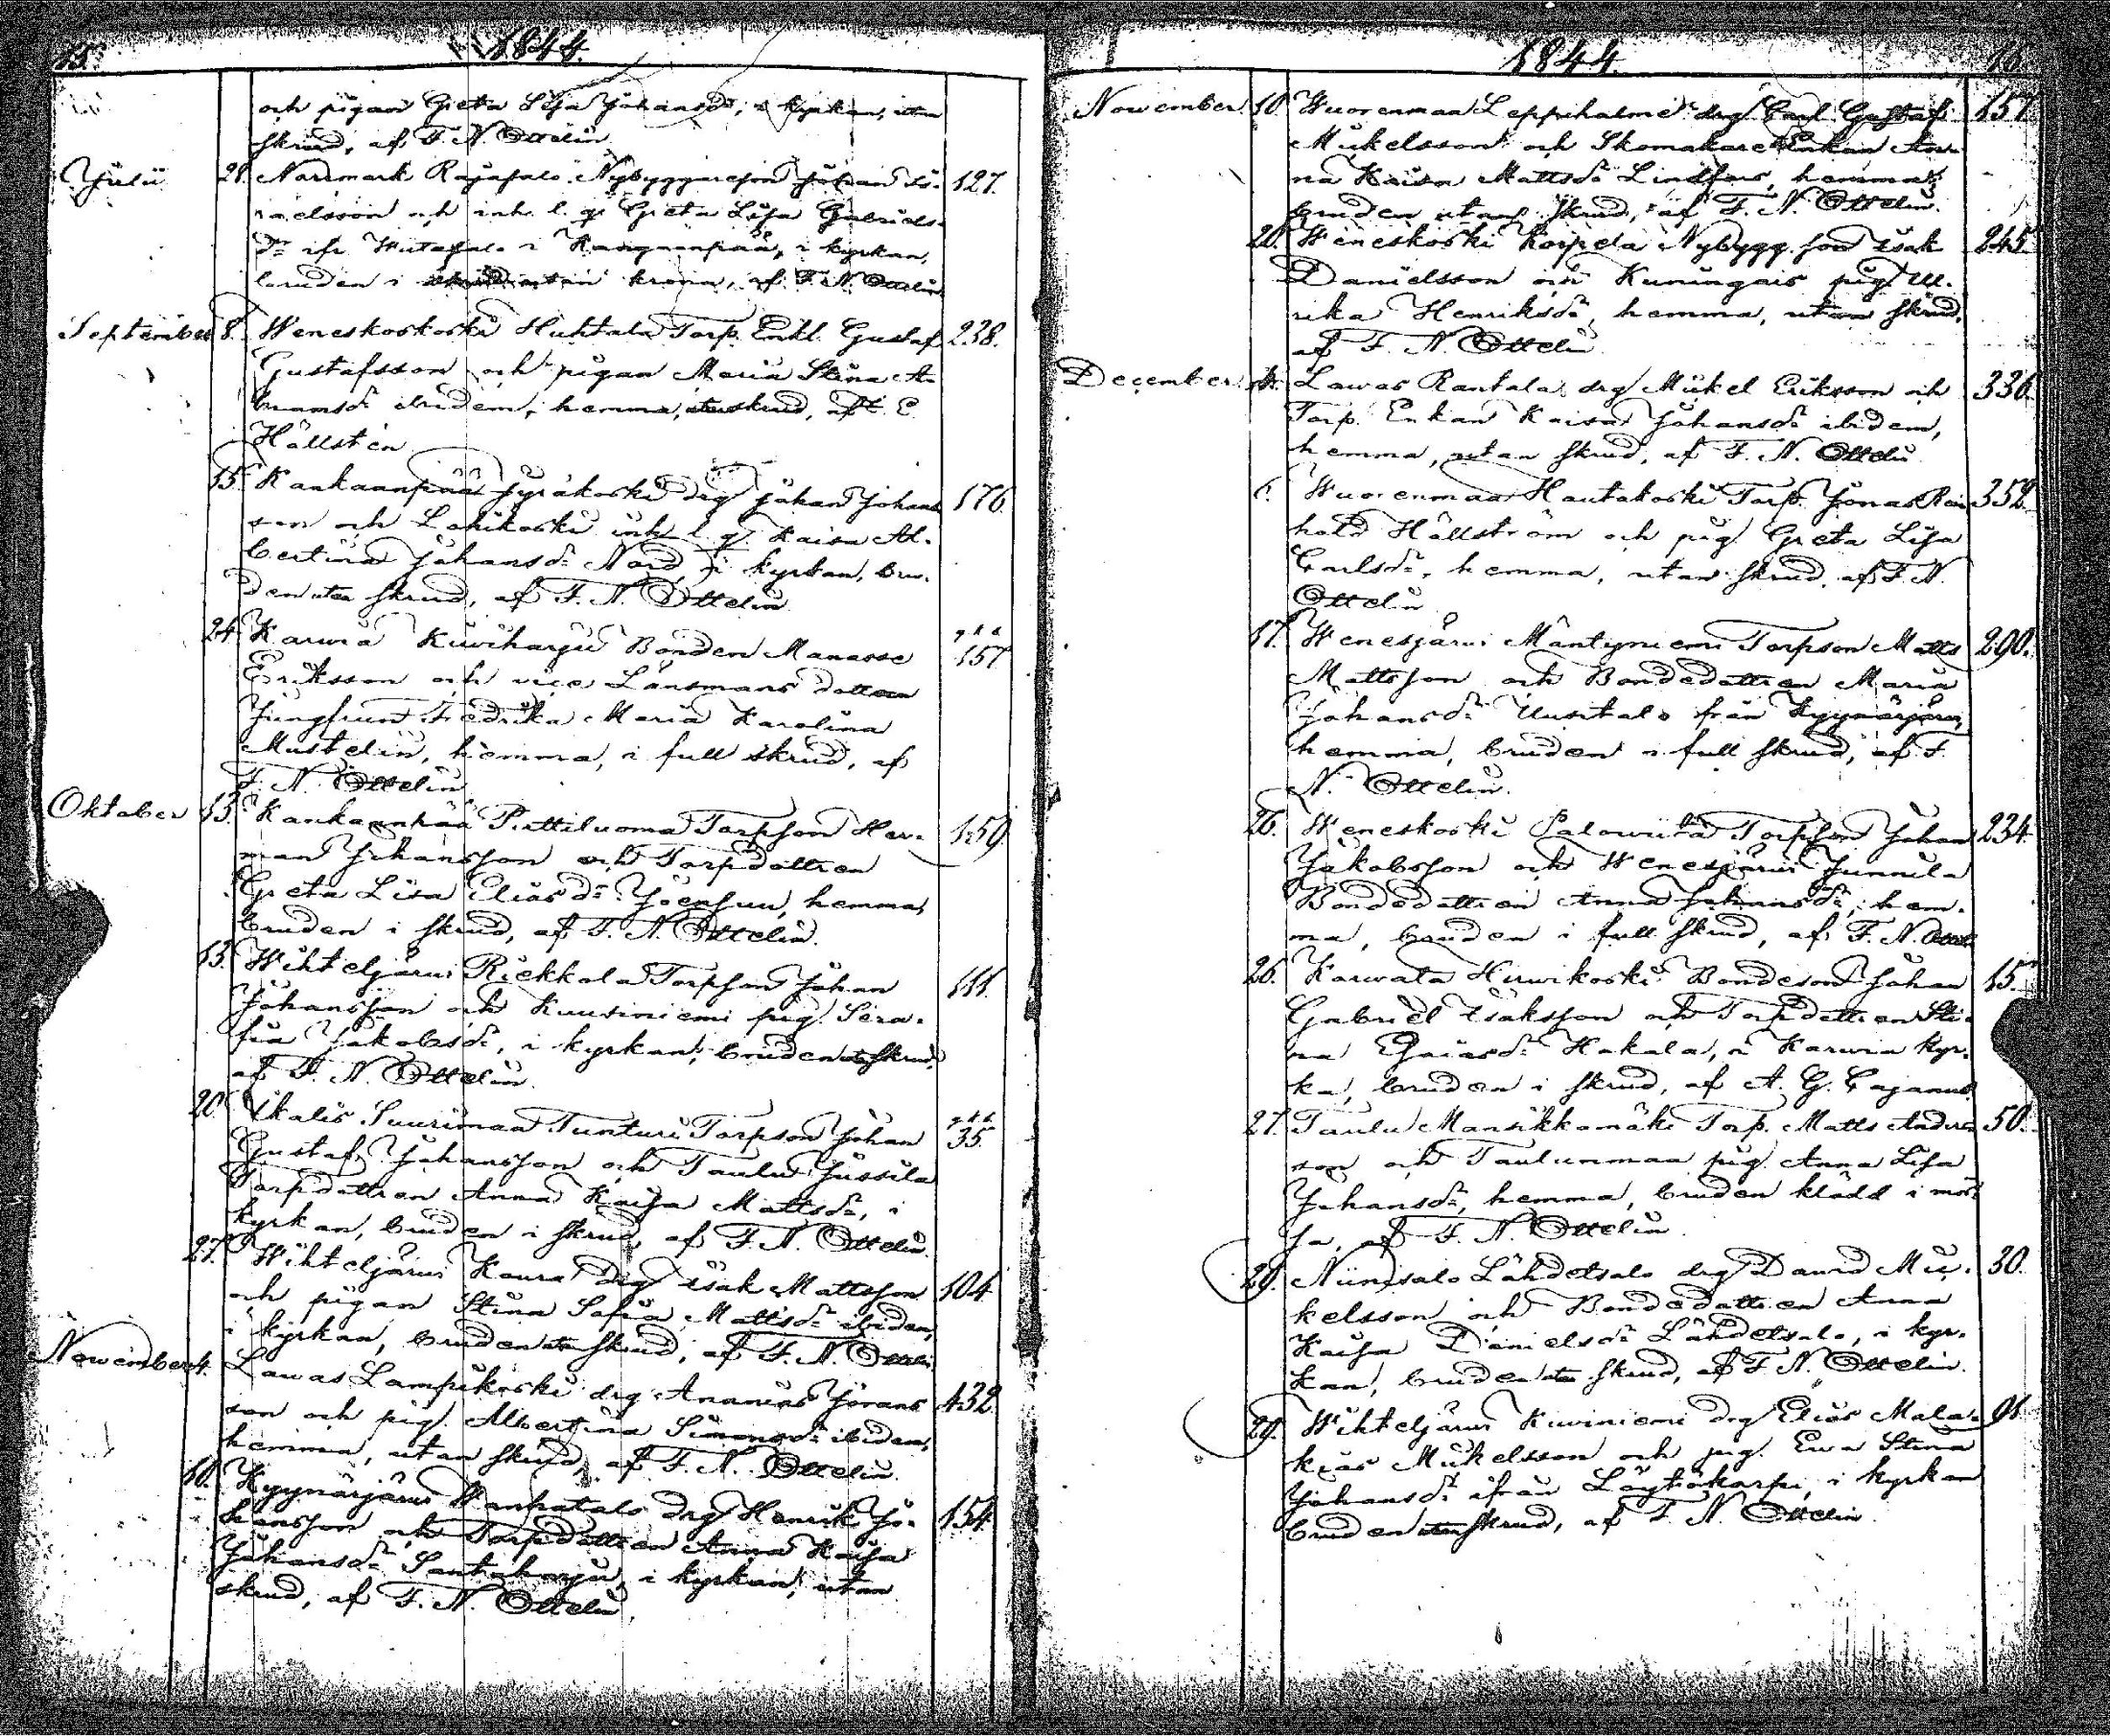 15.
1844.
och pigan Greta Lisa Johansd:r, i kyrkan, utan
skrud, af F. N. Ottelin
Julii 28. Narvmark Rajasalo Nybyggareson Johan Is- 127.
raelsson och inh. l. q. Greta Lisa Gabriels-
d:r ifr. Kankaanpää, i kyrkan,
bruden i skrud utan krona, af F. N. Ottelin
September 8. Weneskoskoski Huhtala Torp. Enkl. Gustaf 238.
Gustafsson och pigan Maria Stina A-
bramsd:r ibidem, hemma, utan skrud, af E.
Hällsten
15. Kankaanpää Jyräkoski drg Johan Johans 176.
son och Lohikoski inh. l. q. Kaisa Al-
bertina Johansd:r Nord, i kyrkan, bru-
den utan skrud, af F. N. Ottelin
24. Karvia Kiviharju Bonden Manasse 157
Eriksson och vice Länsmans dottren
Jungfrun Fredrika Maria Karolina
Mustelin, hemma, i full skrud, af
F. N. Ottelin
Oktober 13. Kankaanpää Pirttiluoma Torpson Her- 159.
man Johansson och Torpdottren
Greta Lisa Eliasd:r Joensuu, hemma,
bruden i skrud, af F. N. Ottelin.
13. Wihteljärvi Riekkola Torpson Johan 111.
Johansson och Kuusiniemi pig. Sera-
fia Jakobsd:r, i kyrkan, bruden utan skrud,
af F. N. Ottelin.
20. Ikalis Suurimaa Tunturi Torpson Johan 35.
Gustaf Johansson och Taulu Jussila
Torpdottren Anna Kaisa Mattsd:r, i
kyrkan, bruden i skrud, af F. N. Ottelin.
27. Wihteljärvi Kaura drg Isak Mattsson 104
och pigan Stina Safia Mattsd:r ibidem,
i kyrkan, bruden utan skrud, af F. N. Ottelin
November 4. Lavas Lampikoski drg Ananias Jörans 432.
son och pig. Albertina Simonsd:r ibidem,
hemma, utan skrud, af F. N. Ottelin.
10. Kyynärjärvi Wanhatalo drg Henrik Jo- 154.
hansson och Torpdottren Anna Kaisa
Johansd:r Santaharju, i kyrkan, utan
skrud, af F. N. Ottelin.
1844.
16
November 10. Wuorenmaa Leppihalme drg Carl Gustaf 157.
Mickelsson och Skomakare Enkan An-
na Kaisa Mattsd:r Lindfors, hemma,
bruden utan skrud, af F. N. Ottelin.
20. Weneskoski Korpela Nybygg. son Isak 245.
Danielsson och Kuningais pig Ul-
rika Henriksd:r, hemma, utan skrud,
af F. N. Ottelin
December Lavas Rantala drg Mickel Eriksson och 336.
Torp. Enkan Kaisa Johansd:r ibidem,
hemma, utan skrud, af F. N. Ottelin
6. Wuorenmaa Hautakoski Torp. Jonas Rein 352.
hold Hällström och pig Greta Lisa
Carlsd:r, hemma, utan skrud, af F. N.
Ottelin
17. Wenesjärvi Mäntyniemi Torpson Matts 290.
Mattsson och Bondedottren Maria
Johansd:r Uusitalo från Kyynärjärvi,
hemma, bruden i full skrud, af F.
N. Ottelin.
26. Weneskoski Palowiita Torpson Johan 234.
Jakobsson och Wenesjärvi Junnila
Bondedottren Anna Johansd:r, hem-
ma, bruden i full skrud, af F. N. Ottelin
26. Karwata Hirwikoski Bondeson Johan 15.
Gabriel Isaksson och Torpdottren Sti-
na Esaiasd:r Hakala, i Karwia kyr-
ka, bruden i skrud, af A. G. Cajanus
27. Taulu Mansikkamäki Torp. Matts Anders 50.
son och Taulunmaa pig. Anna Lisa
Johansd:r, hemma, bruden klädd i mös-
sa, af F. N. Ottelin.
29. Niinisalo Lähdetsalo drg David Mic- 30.
kelsson och Bondedottren Anna
Kaisa Danielsd:r Lähdetsalo, i kyr-
kan, bruden utan skrud, af F. N. Ottelin.
29. Wihteljärvi Kiviniemi drg Elias Mala- 91
kias Mickelsson och pig. Eva Stina
Johansd:r ifrån Löytökorpi, i kyrkan
bruden utan skrud, af F. N. Ottelin.